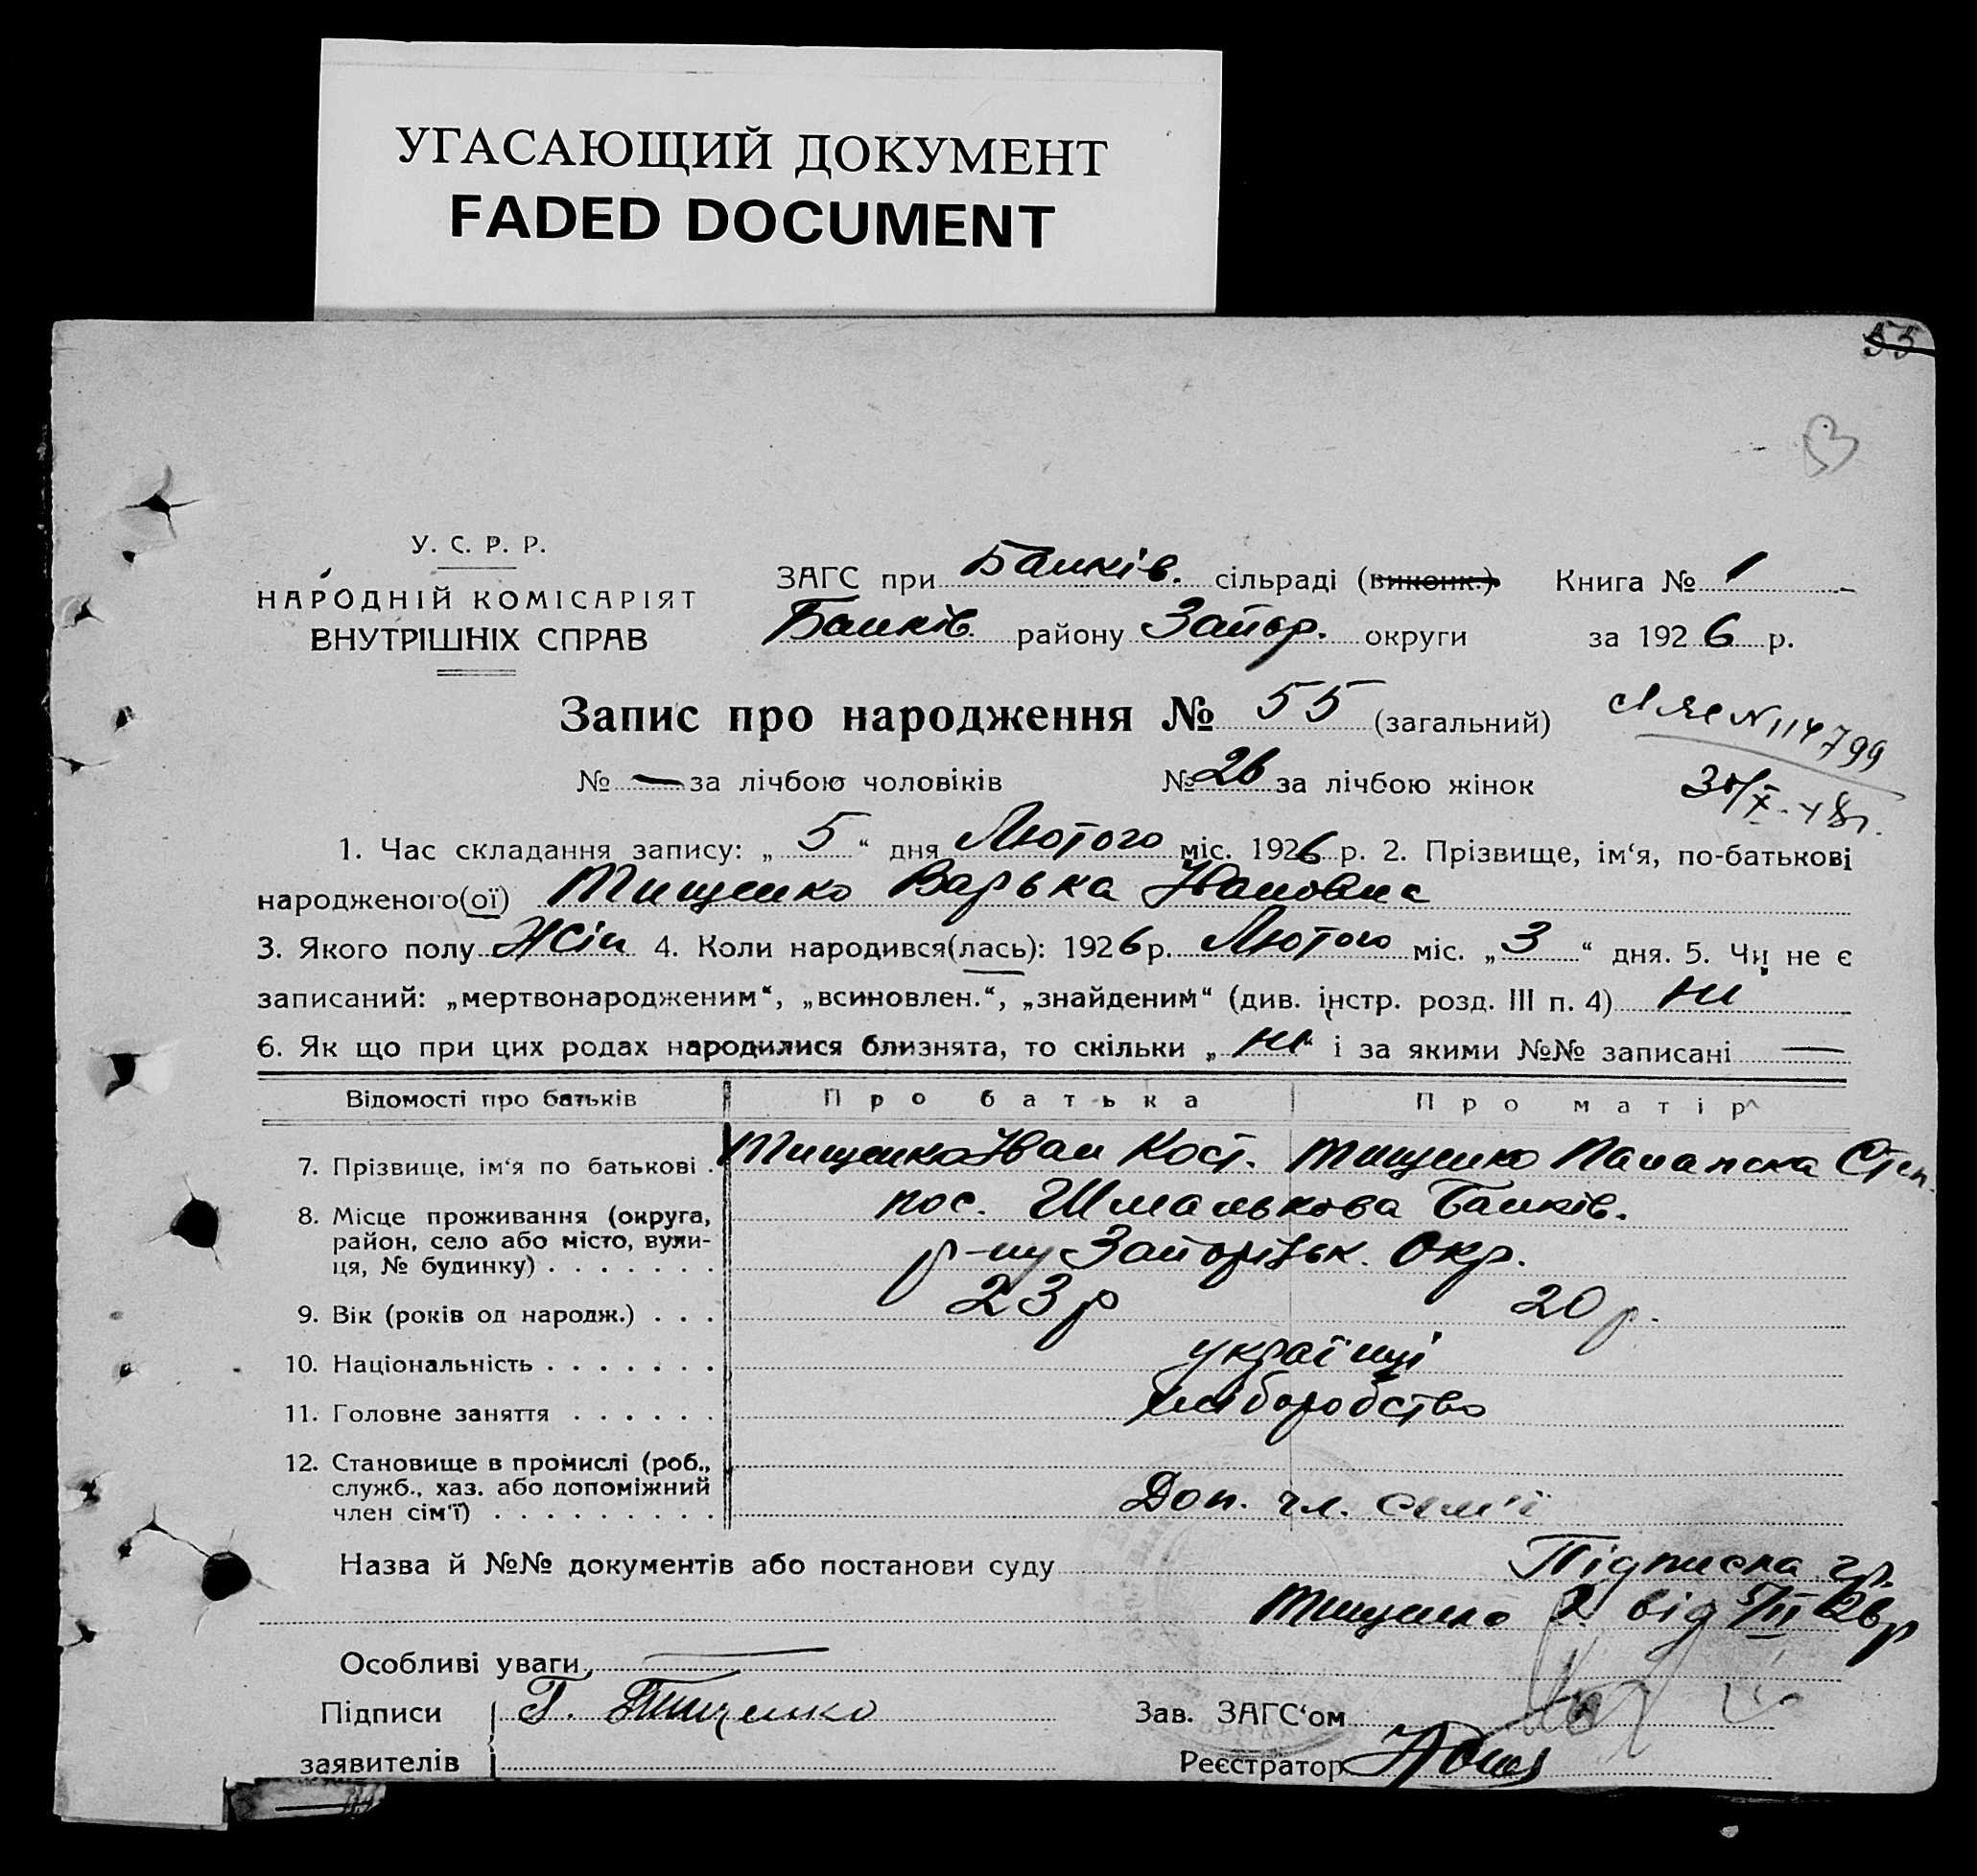 УГАСАЮЩИЙ ДОКУМЕНТ
FADED DOCUMENT
55
У. С. Р. Р.
НАРОДНІЙ КОМІСАРІЯТ
ВНУТРІШНІХ СПРАВ
ЗАГС при Балків. сільраді (виконк.) Книга № 1
Балків. району Запор. округи за 1926 р.
Запис про народження № 55 (загальний)
№ — за лічбою чоловіків № 26 за лічбою жінок
N 114799
30/X-48г.
1. Час складання запису: „ 5 “ дня Лютого міс. 1926 р. 2. Прізвище, ім‘я, по-батькові
народженого(ої) Тищенко Варька Івановна
3. Якого полу Жін 4. Коли народився(лась): 1926 р. Лютого міс. „ 3 “ дня. 5. Чи не є
записаний: „мертвонародженим“, „всиновлен.“, „знайденим“ (див. інстр. розд. III п. 4) ні
6. Як що при цих родах народилися близнята, то скільки „ ні “ і за якими №№ записані —
Відомості про батьків Про батька Про матір
7. Прізвище, ім‘я по батькові . Тищенко Іван Кост. Тищенко Параска Степ.
8. Місце проживання (округа, пос. Шмалькова Балків.
район, село або місто, вули-
ця, № будинку) . . . . . . . р-ну Запорізьк. Окр.
9. Вік (років од народж.) . . . 23 р 20 р.
10. Національність . . . . . . . українці
11. Головне заняття . . . . . . хліборобство
12. Становище в промислі (роб.,
служб., хаз. або допоміжний
член сім‘ї) . . . . . . . . . Доп. чл. сем'ї
Назва й №№ документів або постанови суду Підписка гр.
Тищенко від 5/II 26р
Особливі уваги —
Підписи Г. Тищенко Зав. ЗАГС‘ом
заявителів Реєстратор